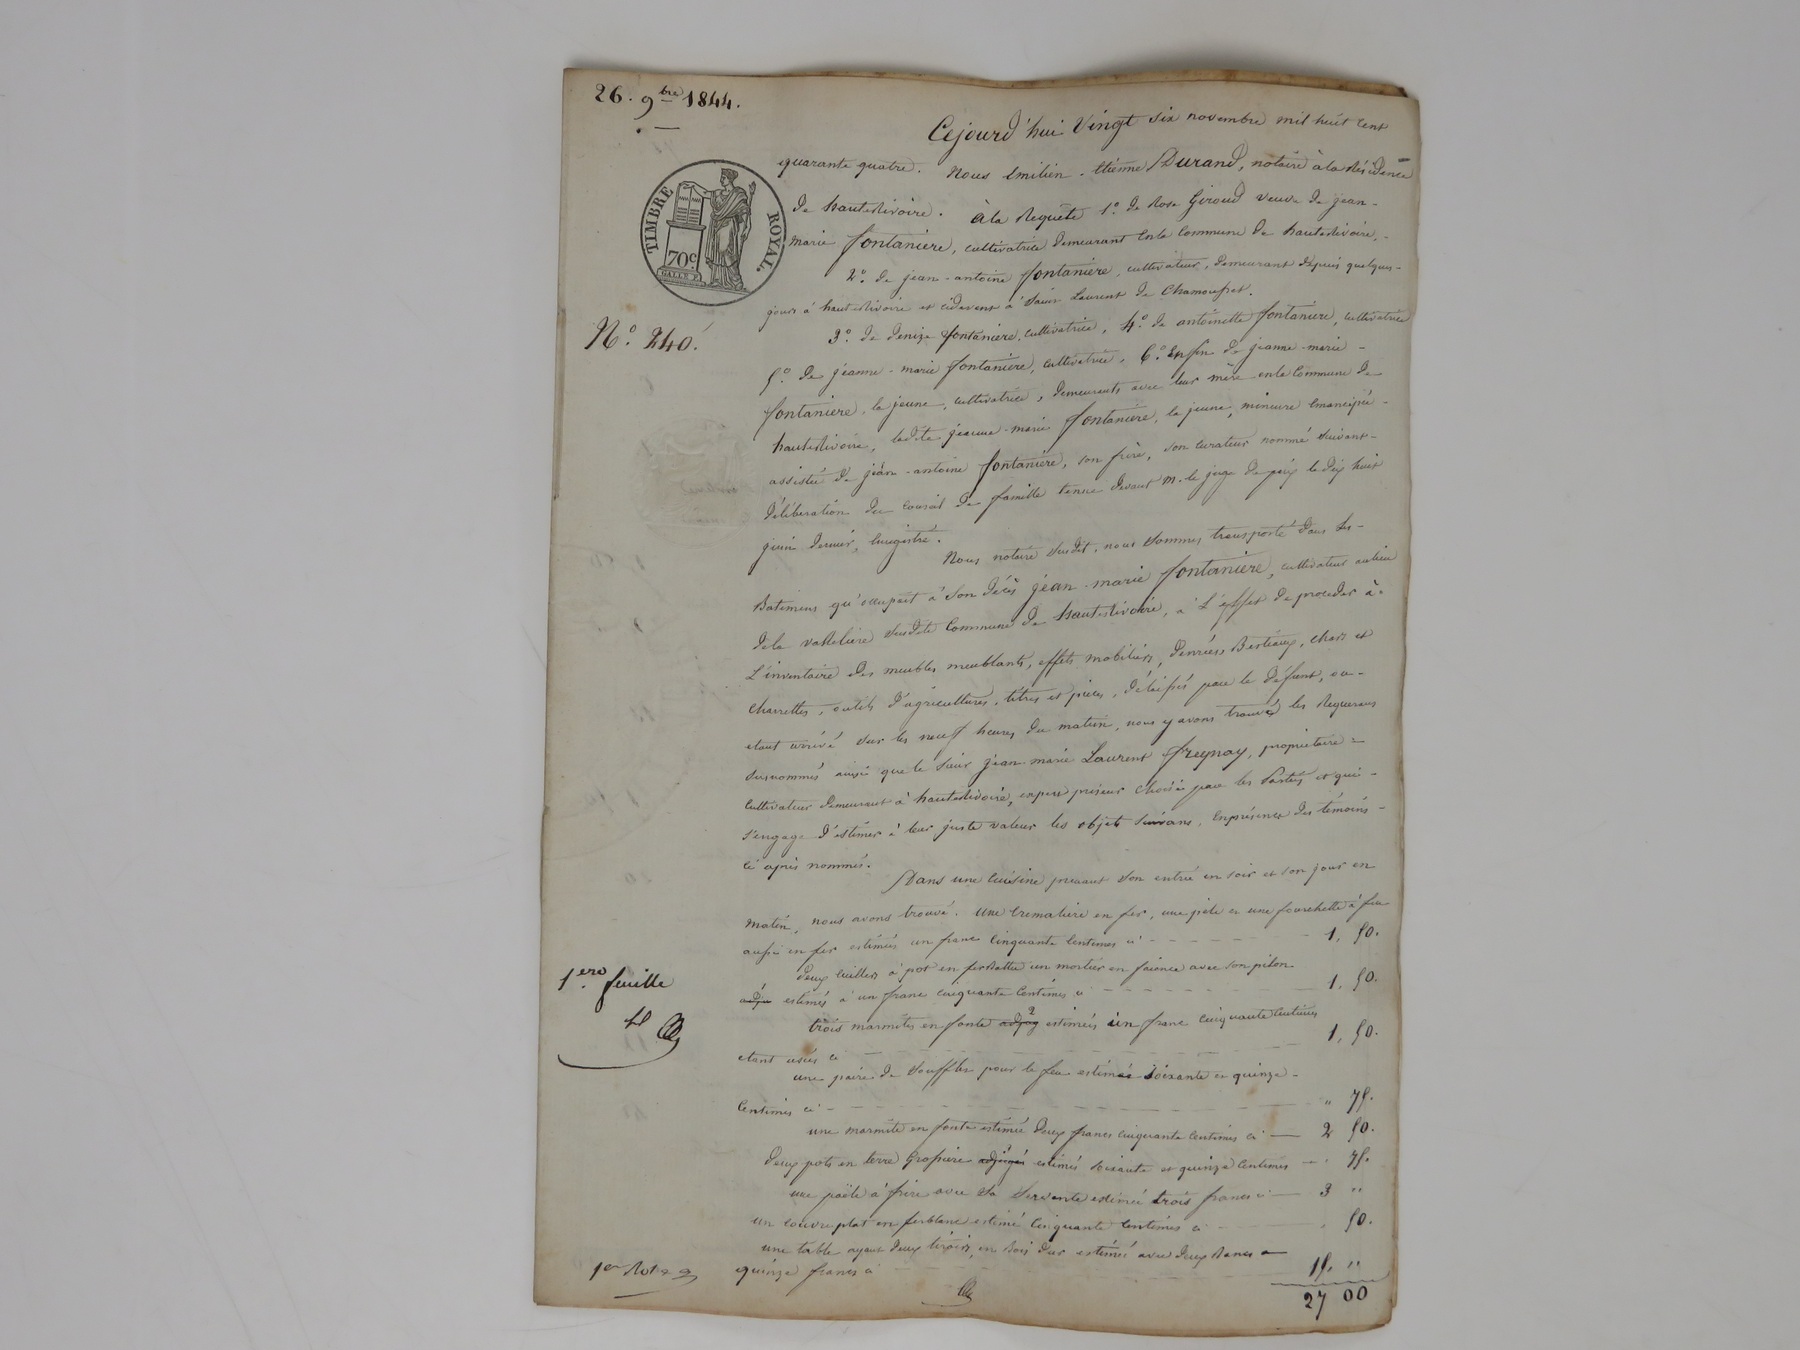 26. 9bre 1844.
Cejourd'hui Vingt six novembre mil huit cent
quarante quatre. Nous Emilien-Etienne Durand, notaire à la Résidence
TIMBRE ROYAL.
70c.
de hauterivoire. à la Requête 1º. de Rose Giroud veuve de jean-
marie fontaniere, cultivatrice demeurant en la Commune de hauterivoire,
2º. de jean-antoine fontaniere, cultivateur, demeurant depuis quelques-
jours à hauterivoire et cidevant à Saint Laurent de Chamousset.
Nº. 240.
3º. de denize fontaniere, cultivatrice, 4º. de antoinette fontaniere, cultivatrice
5º. de jeanne-marie fontaniere, cultivatrice, 6º. Enfin de jeanne-marie-
fontaniere, la jeune, cultivatrice, demeurants avec leur mère en la Commune de
hauterivoire, ladite jeanne-marie fontaniere, la jeune, mineure émancipée-
assistée de jean-antoine fontaniere, son frère, son curateur nommé suivant-
délibération du conseil de famille tenue devant M. le juge de paix le dix huit
juin dernier, Enregistré.
Nous notaire susdit, nous sommes transporté dans les-
Batimens qu'occupait à son décès jean-marie fontaniere, cultivateur au lieu
de la susdite Commune de hauterivoire, à L'effet de proceder à
L'inventaire des meubles meublants, effets mobiliers, denrées Bestiaux, chars et
charrettes, outils d'agricultures, titres et pieces, délaissés par le défunt, ou-
étant arrivé sur les neuf heures du matin, nous y avons trouvé les Requerans
susnommés ainsi que le Sieur jean marie Laurent freynay, propriétaire=
cultivateur demeurant à hauterivoire, expert priseur choisi par les Parties et qui-
s'engage d'estimer à leur juste valeur les objets suivans, En présence des témoins-
ci après nommés.
Dans une cuisine prenant son entrée en soir et son jour en
matin, nous avons trouvé. une cremaliere en fer, une pele et une fourchette à feu
aussi en fer estimés un franc Cinquante Centimes ci 1, 50.
deux cuillers à pot en fer battu un mortier en faience avec son pilon
estimés à un franc cinquante Centimes ci 1, 50.
1ere feuille
trois marmites en fonte estimées un franc cinquante Centimes
étant usées ci 1, 50.
une paire de Soufflets pour le feu estimés soixante et quinze-
Centimes ci " 75.
une marmite en fonte estimée deux francs cinquante Centimes ci 2 50.
deux pots en terre Grossiere estimés soixante et quinze Centimes 75.
une poële à frire avec sa servante estimée trois francs ci 3 "
un couvre plat en ferblanc estimé Cinquante Centimes ci 50.
une table ayant deux tiroirs, en bois dur estimée avec deux bancs
quinze francs ci 15, "
1er Rôle
27 00